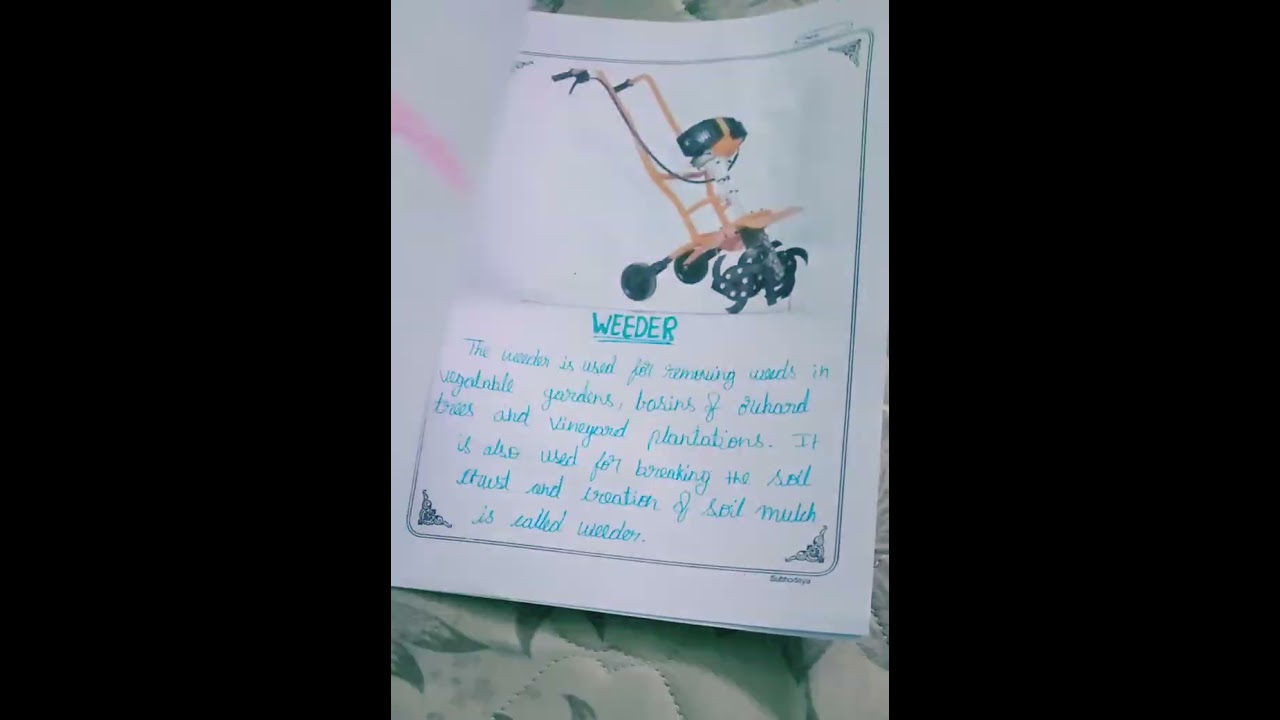 WEEDER
The weeder is used for removing weeds in
vegatable gardens, basins of orchard
trees and vineyard plantations. It
is also used for breaking the soil
crust and creation of soil mulch
is called weeder.
Subhodaya